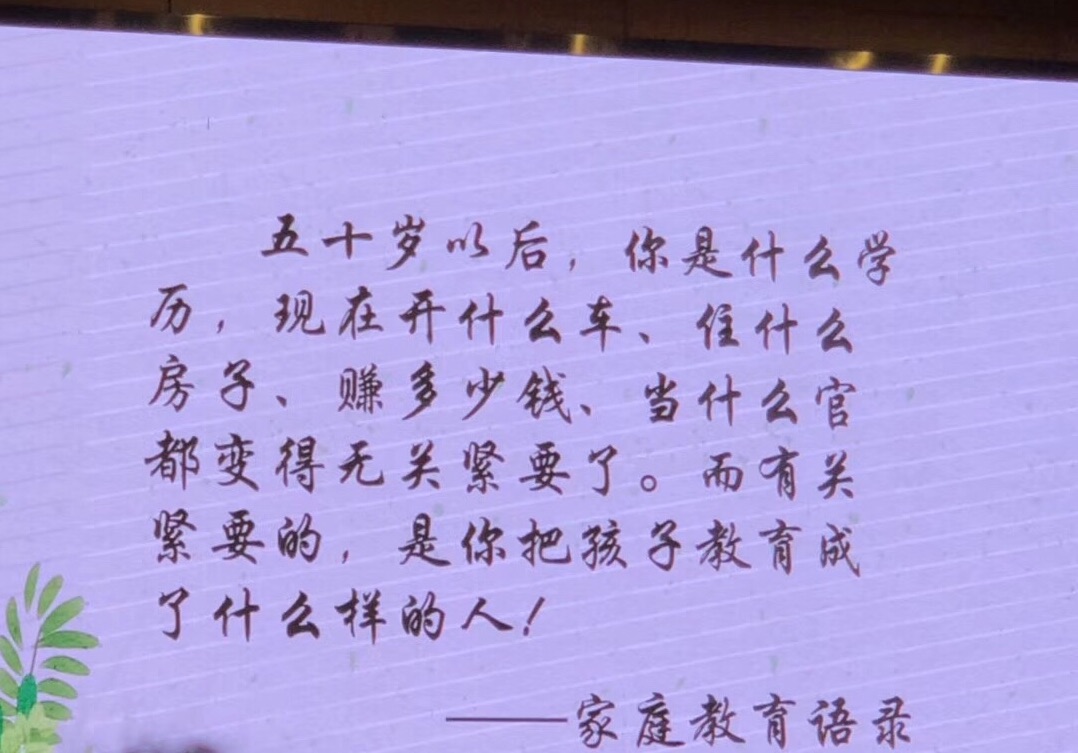 五十岁以后，你是什么学
历，现在开什么车、住什么
房子、赚多少钱、当什么官
都变得无关紧要了。而有关
紧要的，是你把孩子教育成
了什么样的人！
——家庭教育语录